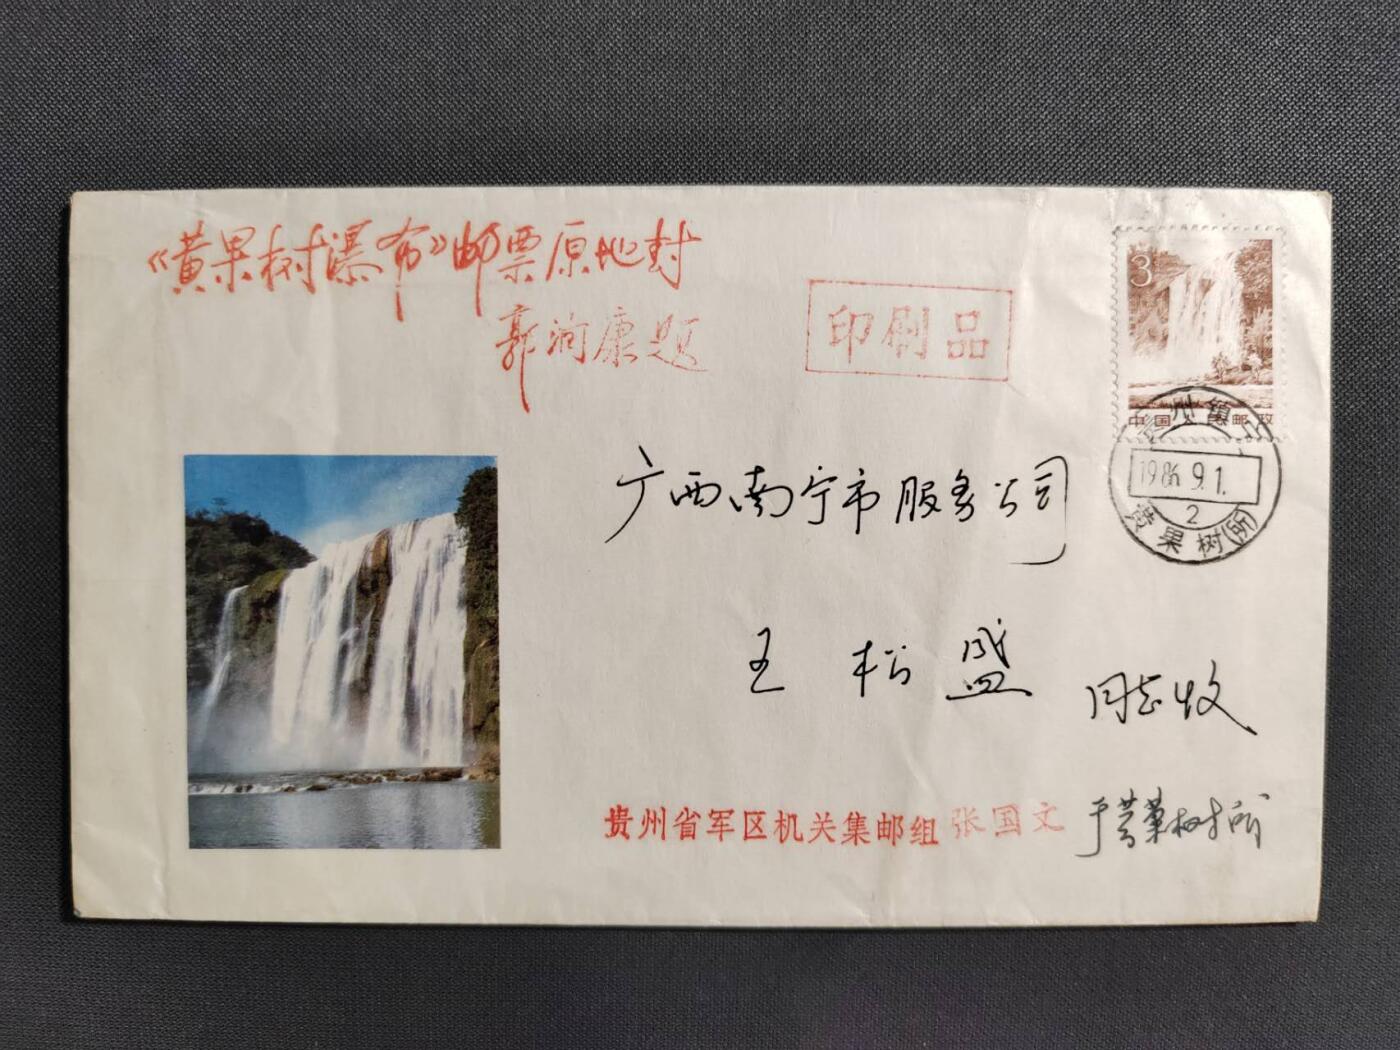 《黄果树瀑布》邮票原地封
郭润康题
印刷品
3
中国人民邮政
贵州镇宁
1986.9.1.
2
黄果树(所)
广西南宁市服务公司
王松盛 同志收
贵州省军区机关集邮组 张国文
于黄果树所